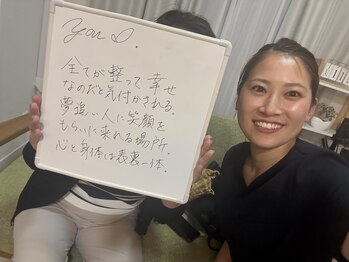 you D.
全てが整って幸せ
なのだと気付かされる.
夢追い人に笑顔を
もらいに来れる場所.
心と身体は表裏一体.